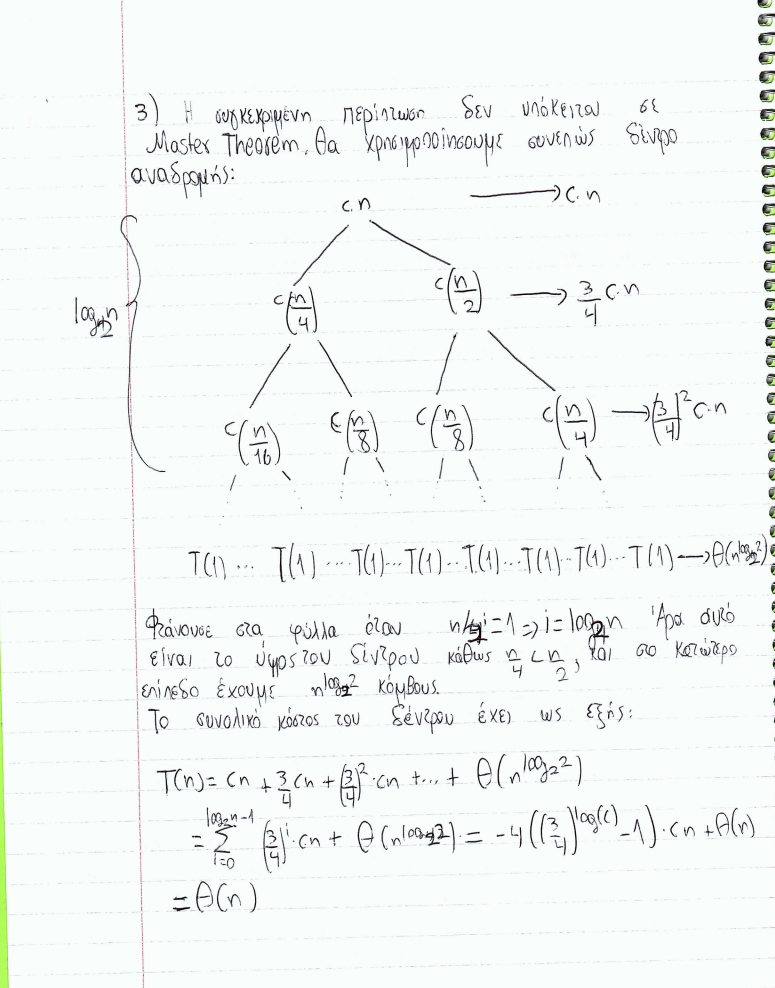 3) Η συγκεκριμένη περίπτωση δεν υπόκειται σε
Master Theorem. Θα χρησιμοποιήσουμε συνεπώς δέντρο
αναδρομής:
c.n → c.n
log₂n
c(n/4) c(n/2) → 3/4 c.n
c(n/16) c(n/8) c(n/8) c(n/4) → (3/4)² c.n
T(1) ... T(1) ... T(1)... T(1) ... T(1)... T(1).. T(1)... T(1) → Θ(n^log₂2)
Φτάνουμε στα φύλλα όταν n/2^i = 1 => i = log₂n Άρα αυτό
είναι το ύψος του δέντρου καθώς n/4 < n/2, και στο κατώτερο
επίπεδο έχουμε n^log₂2 κόμβους.
Το συνολικό κόστος του δέντρου έχει ως εξής:
T(n) = cn + 3/4 cn + (3/4)² · cn + ... + Θ(n^log₂2)
= Σ_{i=0}^{log₂n-1} (3/4)^i · cn + Θ(n^log₂2) = -4((3/4)^log(c) - 1) · cn + Θ(n)
= Θ(n)